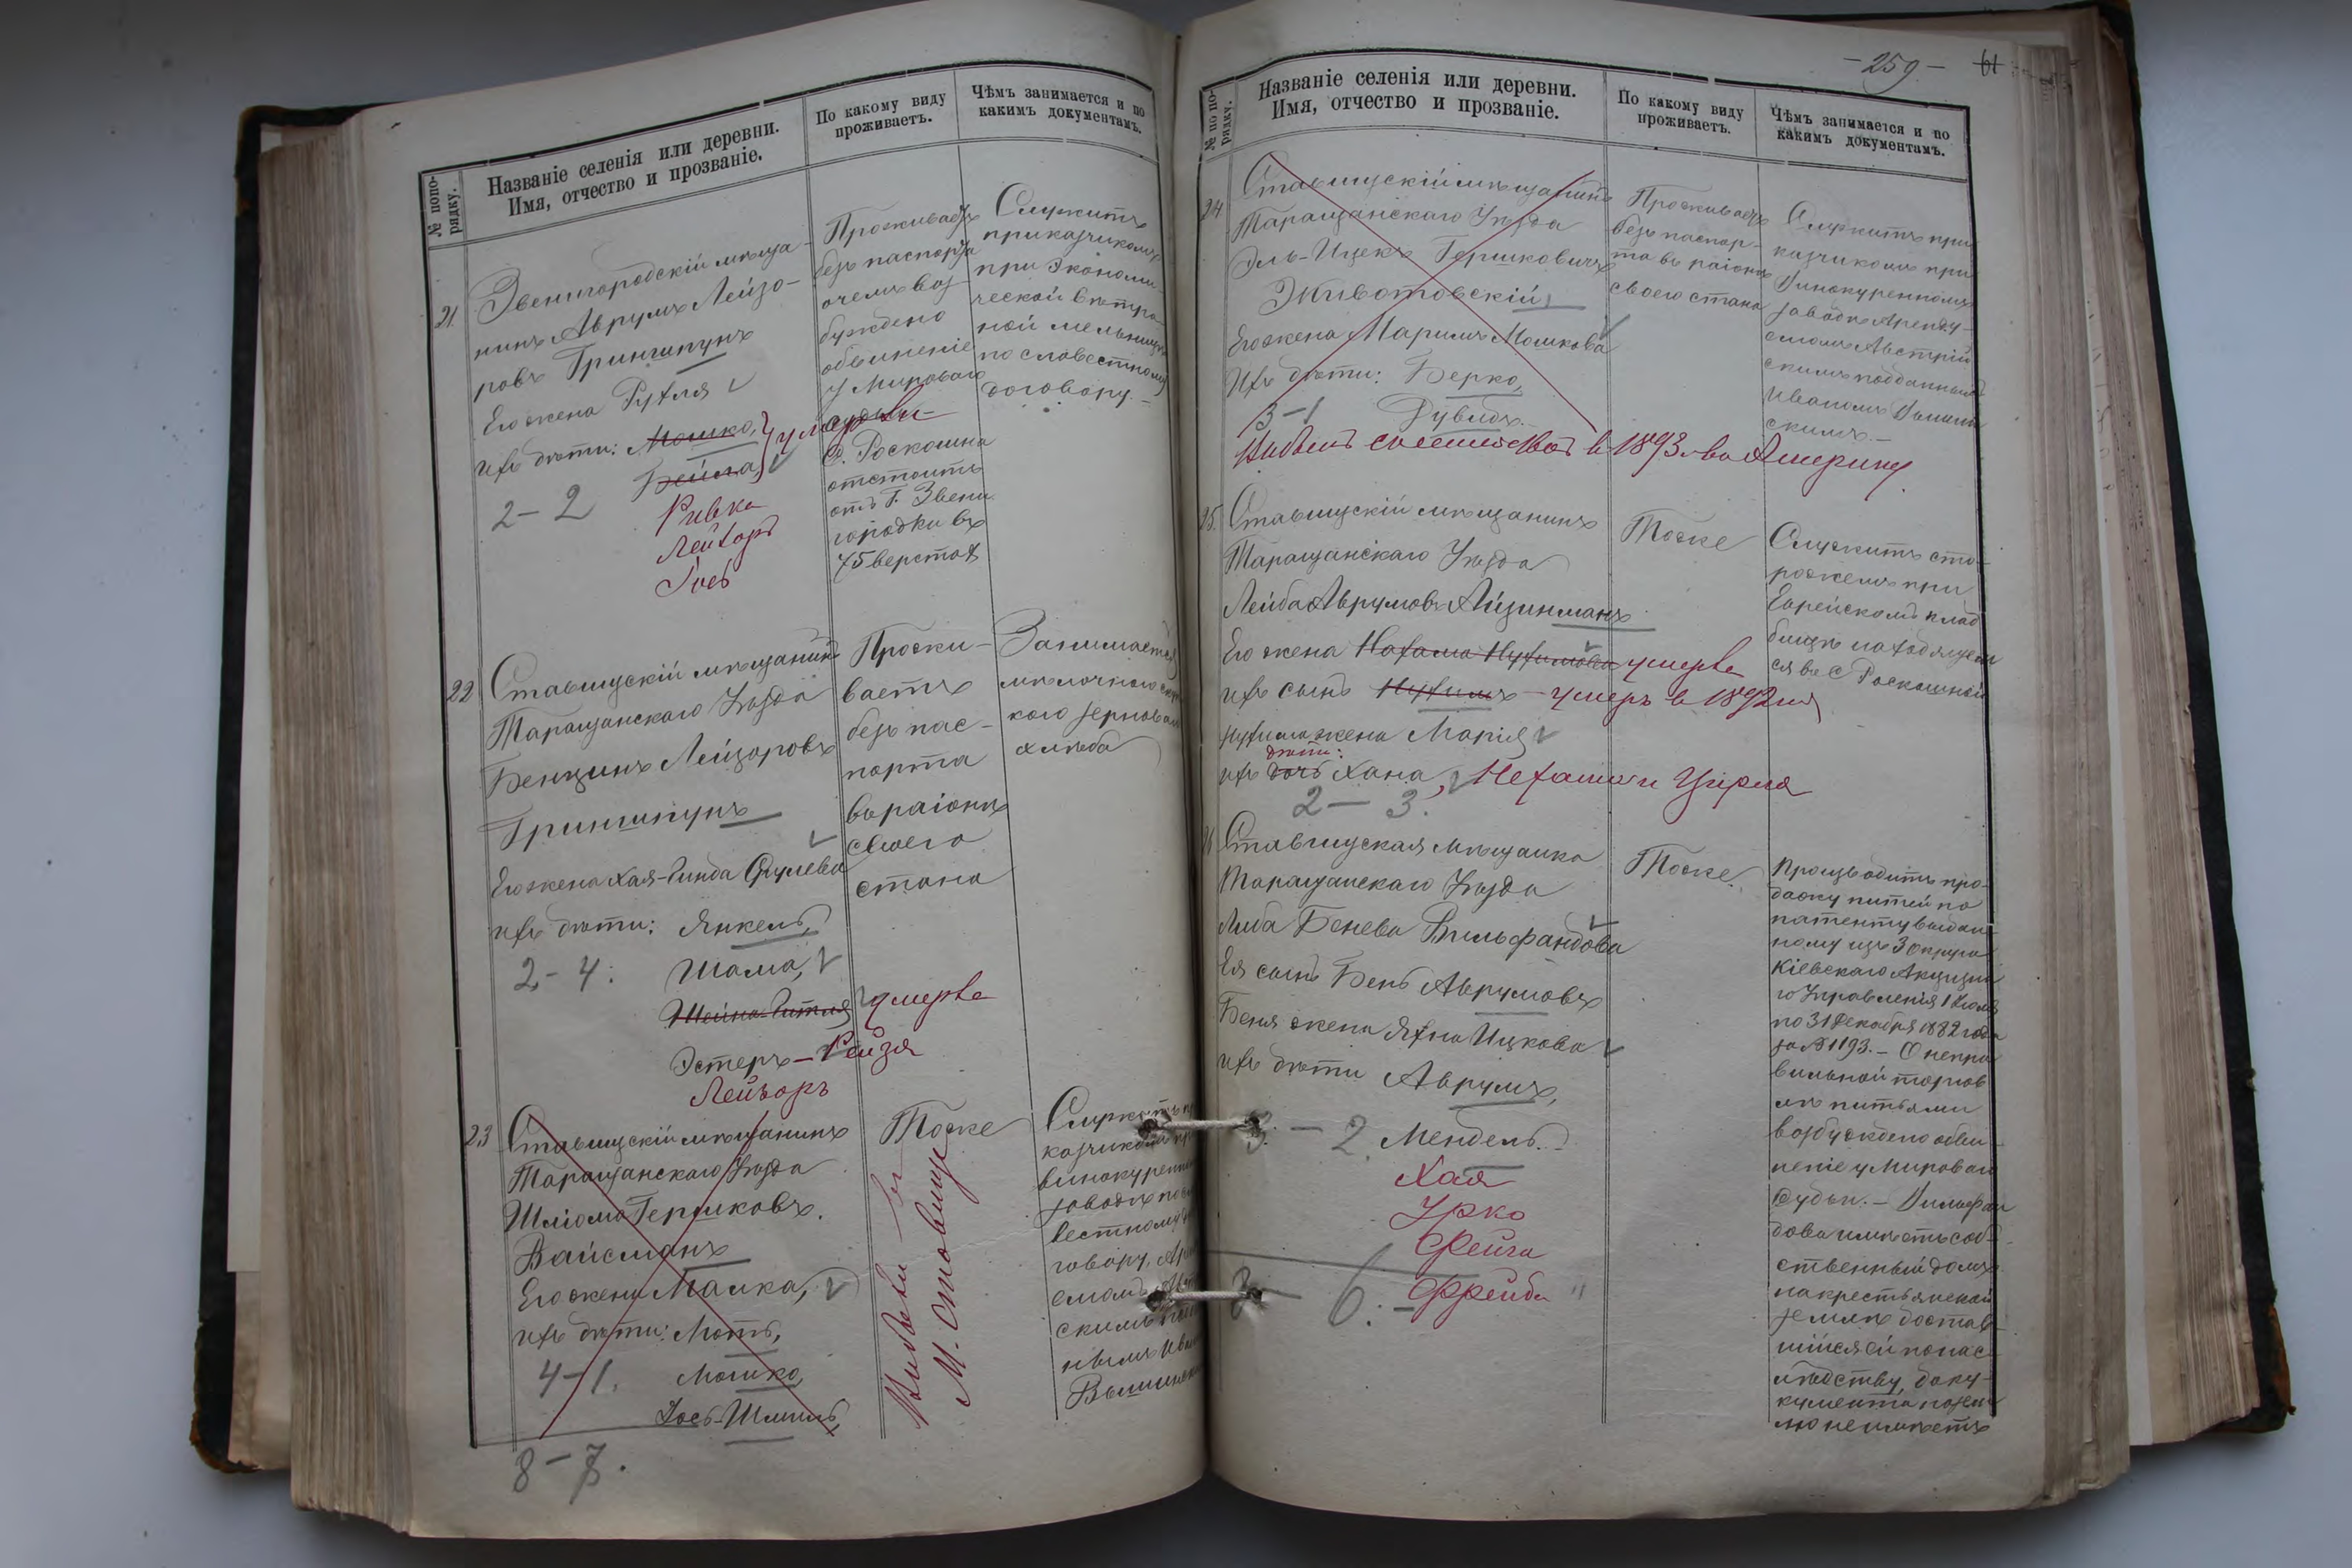 № попо-
рядку.
Названіе селенія или деревни.
Имя, отчество и прозваніе.
По какому виду
проживаетъ.
Чѣмъ занимается и по
какимъ документамъ.
21
Звенигородскій мѣща-
нинъ Аврумъ Лейзо-
ровъ Грингипунъ
Его жена Рухля
ихъ дѣти: Мошко, умерли
Бейла,
2-2
Ривка
Лейзоръ
Іосъ
Проживаетъ
безъ паспорта
о чемъ воз-
буждено
обвиненіе
у Мироваго
судьи
С. Роскошна
отстоитъ
отъ Г. Звени
городки въ
75 верстах
Служитъ
приказчикомъ
при Экономи-
ческой вѣтря-
ной мельницѣ
по словестному
договору. -
22
Ставищскій мѣщанинъ
Таращанскаго Уѣзда
Бенционъ Лейзоровъ
Грингипунъ
Его жена Хая-Гинда Сруліева
ихъ дѣти: Янкель,
2-4.
Шама,
Шейна-Гитля умерла
Эстеръ-Рейзя
Лейзоръ
Прожи-
ваетъ
безъ пас-
порта
въ раіонѣ
своего
стана
Занимается
мѣлочною скуп
кою зерноваго
хлѣба
23
Ставищскій мѣщанинъ
Таращанскаго Уѣзда
Шліома Гершковъ.
Вайсманъ
Его жена Малка,
ихъ дѣти: Моть,
4-1.
Мошко,
Іось-Шмиль,
8-7.
Тоже
Выбыли въ
М. Ставище
Служитъ
казчикомъ
винокурен
заводѣ по
вестному
говору, Ар
емомъ Ав
скимъ
нымъ Ива
Вышинск
-259- 61
№ по по-
рядку.
Названіе селенія или деревни.
Имя, отчество и прозваніе.
По какому виду
проживаетъ.
Чѣмъ занимается и по
какимъ документамъ.
24
Ставищскій мѣщанинъ
Таращанскаго Уѣзда
Эль-Ицекъ Гершковичъ
Животовскій
Его жена Маримъ Мошкова
Ихъ дѣти: Берко,
3-1 Рувимъ.
Выбылъ со семействомъ в 1893 г. во Америку.
Проживаетъ
безъ паспор-
та въ раіонѣ
своего стана
Служитъ при
казчикомъ при
Винокуренномъ
заводѣ Аренду-
емомъ Австрій
скимъ подданнымъ
Иваномъ Вышин
скимъ. -
25.
Ставищскій мѣщанинъ
Таращанскаго Уѣзда
Лейба Аврумовъ Айзинманъ
Его жена Нехама Нухимова умерла
ихъ сынъ Нухимъ - умеръ в 1892 г.
Нухима жена Марія
дѣти:
ихъ дочь Хана, Нехама и Цирля
2-3.
Тоже
Служитъ сто-
рожемъ при
Еврейскомъ клад
бищѣ находящем
ся въ С. Роскошной
26
Ставищская мѣщанка
Таращанскаго Уѣзда
Люба Бенева Вильфандова
Ея сынъ Бень Аврумовъ
Беня жена Яхна Ицкова
ихъ дѣти Аврумъ,
3-2. Мендель.
Хая
Урко
Фейга
6. - Фрейда
Тоже.
Производитъ про-
дажу питей по
патенту выдан-
ному изъ 3 округа
Кіевскаго Акцизна
го Управленія 1 Іюля
по 31 Декабря 1882 года
за № 1193. - О непра
вильной торгов
лѣ питьями
возбуждено обви-
неніе у Мироваго
Судьи. - Вильфан
дова имѣетъ соб-
ственный домъ
на крестьянской
землѣ достав-
шійся ей по нас-
лѣдству, доку-
мента на зем-
лю не имѣетъ